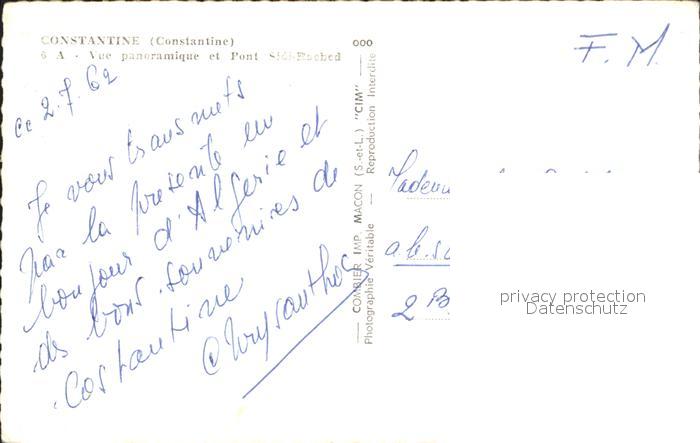 CONSTANTINE (Constantine)
6 A - Vue panoramique et Pont Sidi-Rached
ce 2.7.62
Je vous transmets
par la présente un
bonjour d'Algérie et
des bons souvenires de
Costantine
Chrysanthos
COMBIER IMP. MACON (S.-et-L.) "CIM"
Photographie Véritable — Reproduction Interdite
F. M.
2 B
privacy protection
Datenschutz